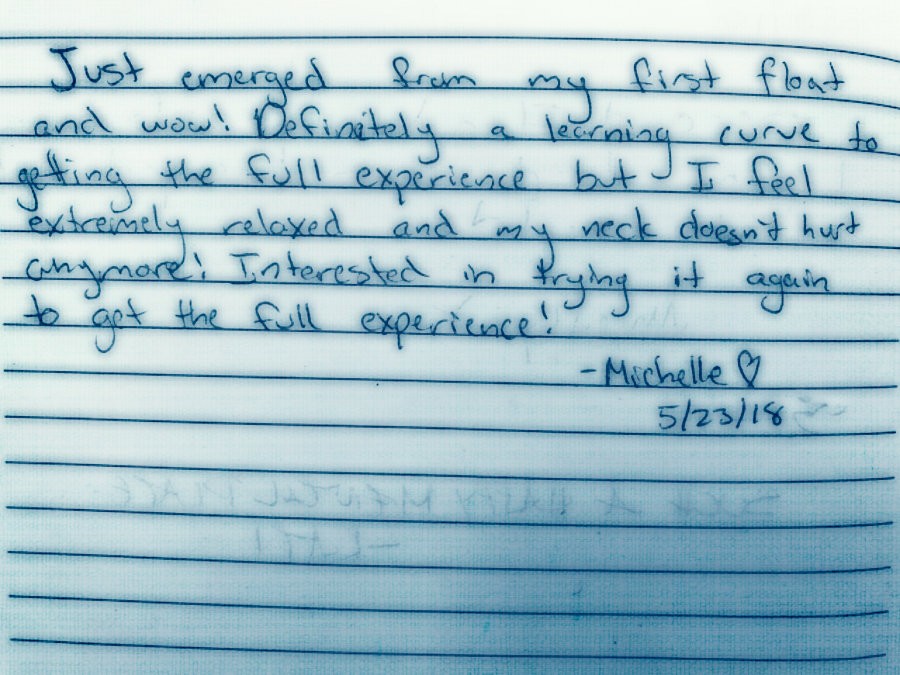 Just emerged from my first float
and wow! Definitely a learning curve to
getting the full experience but I feel
extremely relaxed and my neck doesn't hurt
anymore! Interested in trying it again
to get the full experience!
-Michelle ♡
5/23/18